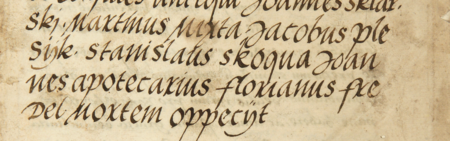 antiqui Joannes Skar-
ski. Martinus Mixta Jacobus ple
Syk. Stanislaus Skoqua Joan
nes apotecarius florianus fre
del Mortem oppecijt